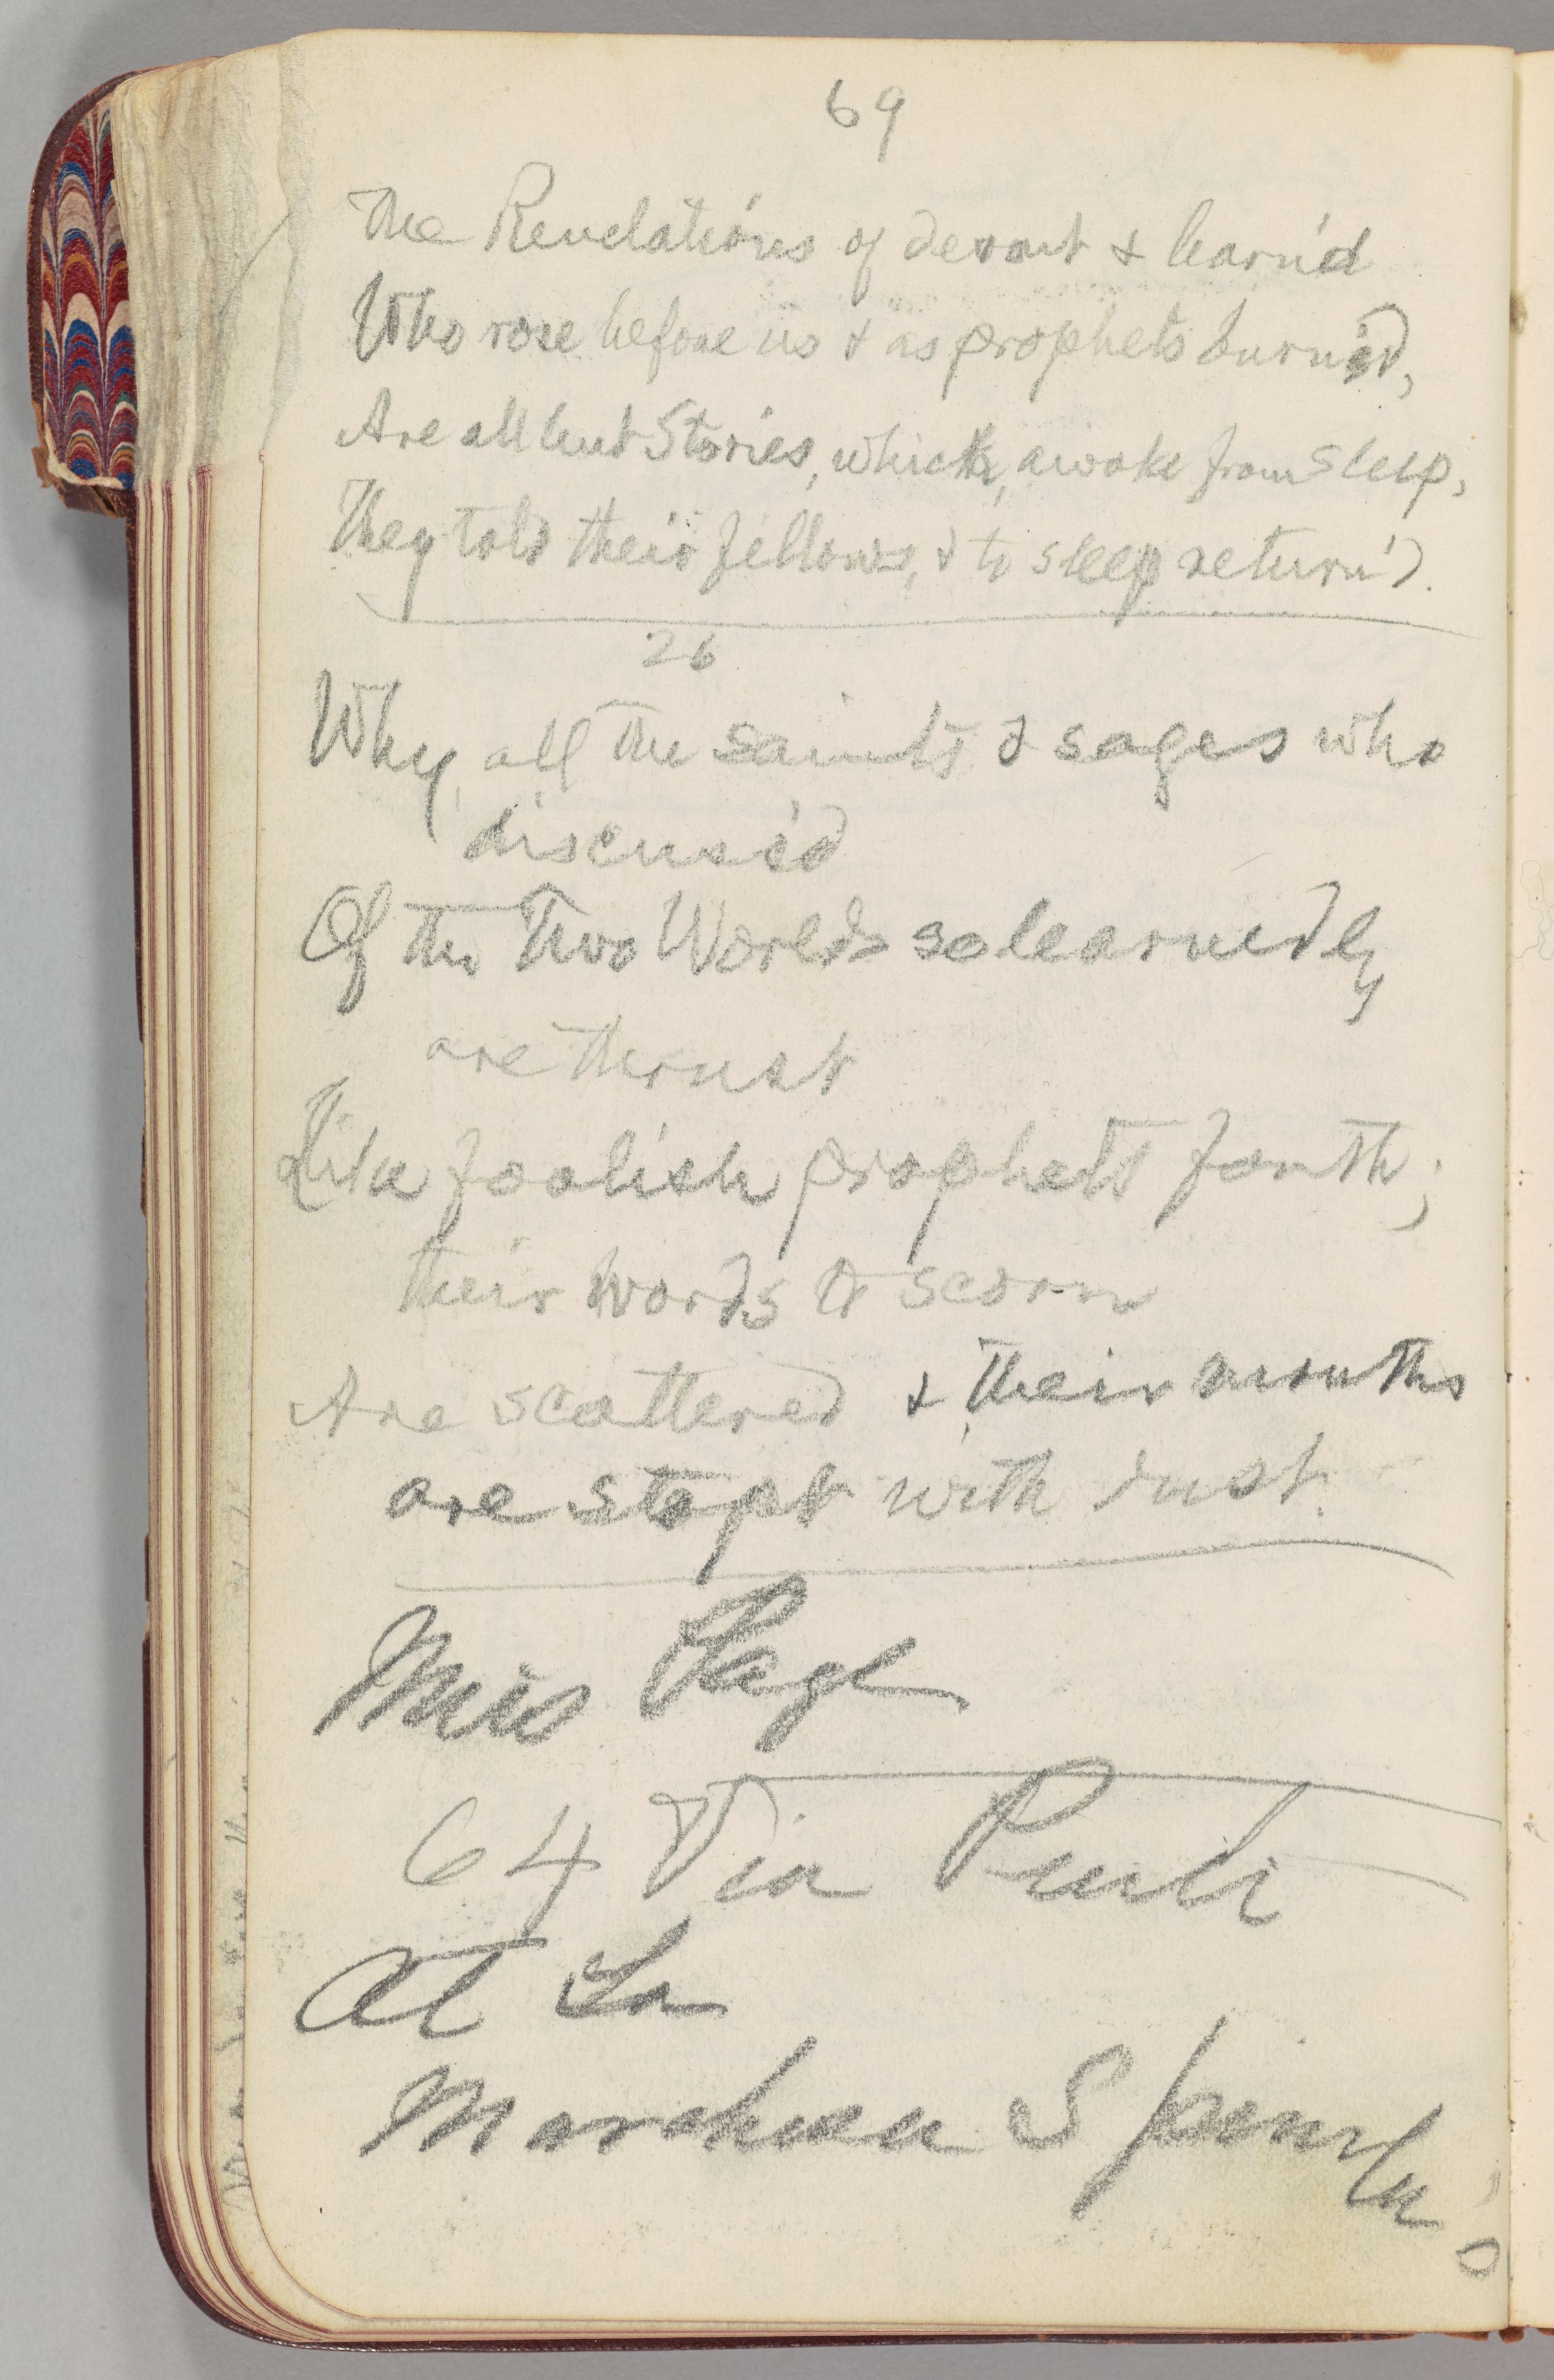 69
The Revelations of devout & learn'd
Who rose before us & as prophets burn'd,
Are all but Stories, which, awoke from sleep,
They told their fellows, & to sleep return'd.
26
Why, all the saints & sages who
discuss'd
Of the Two Worlds so learnedly
are thrust
Like foolish prophets forth;
their words to scorn
Are scattered & their mouths
are stopt with dust.
Miss Page
64 Via
At La